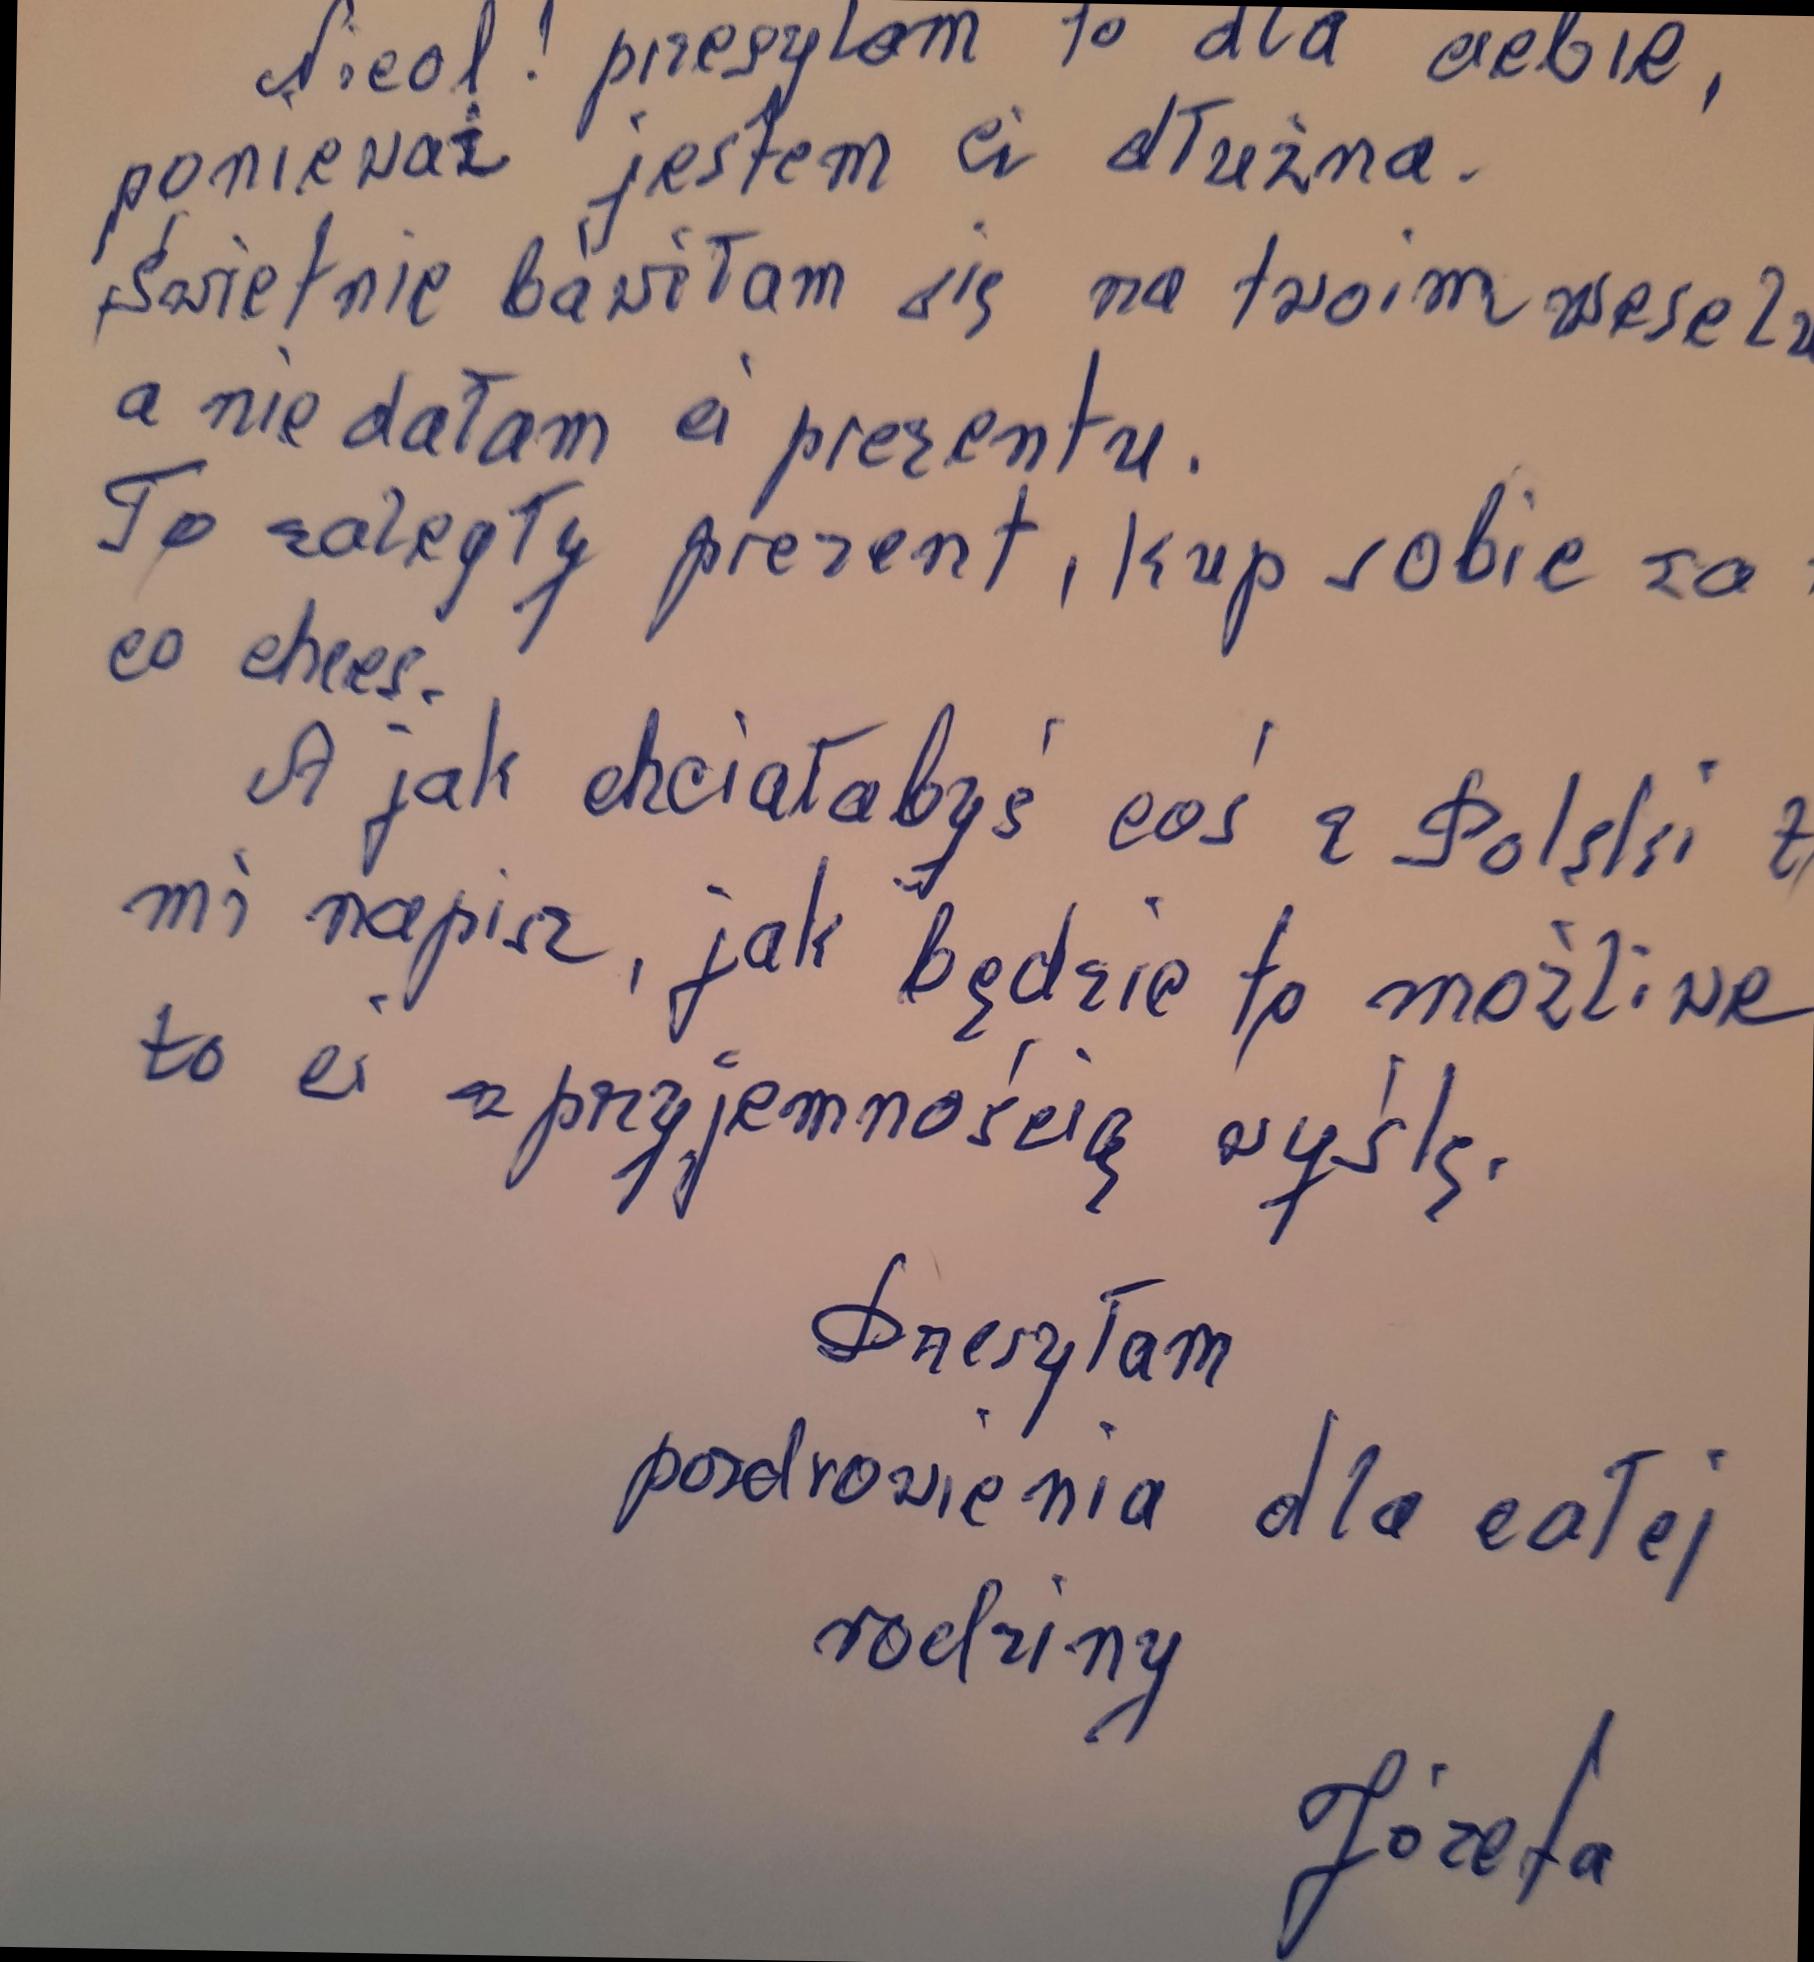 Nicol! przesyłam to dla ciebie,
ponieważ jestem ci dłużna.
Świetnie bawiłam się na twoim weselu
a nie dałam ci prezentu.
To zaległy prezent, kup sobie za
co chces.
A jak chciałabyś coś z Polski
mi napisz, jak będzie to możliwe
to ci z przyjemnością wyślę.
Przesyłam
pozdrowienia dla całej
rodziny
Józefa